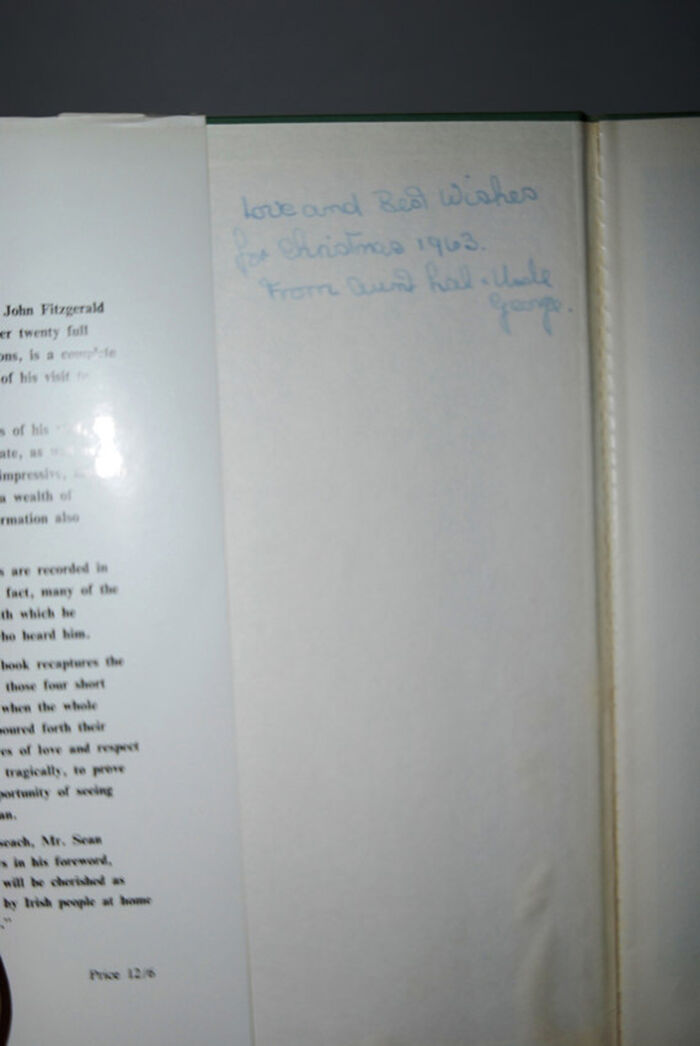 Love and Best Wishes
for Christmas 1963.
From Aunt & Uncle
George.
John Fitzgerald
er twenty full
ons, is a complete
of his visit
s of his
ate, as
impressive,
a wealth of
rmation also
s are recorded in
fact, many of the
th which he
ho heard him.
book recaptures the
those four short
when the whole
poured forth their
es of love and respect
tragically, to prove
portunity of seeing
an.
seach, Mr. Sean
s in his foreword,
will be cherished as
by Irish people at home
."
Price 12/6